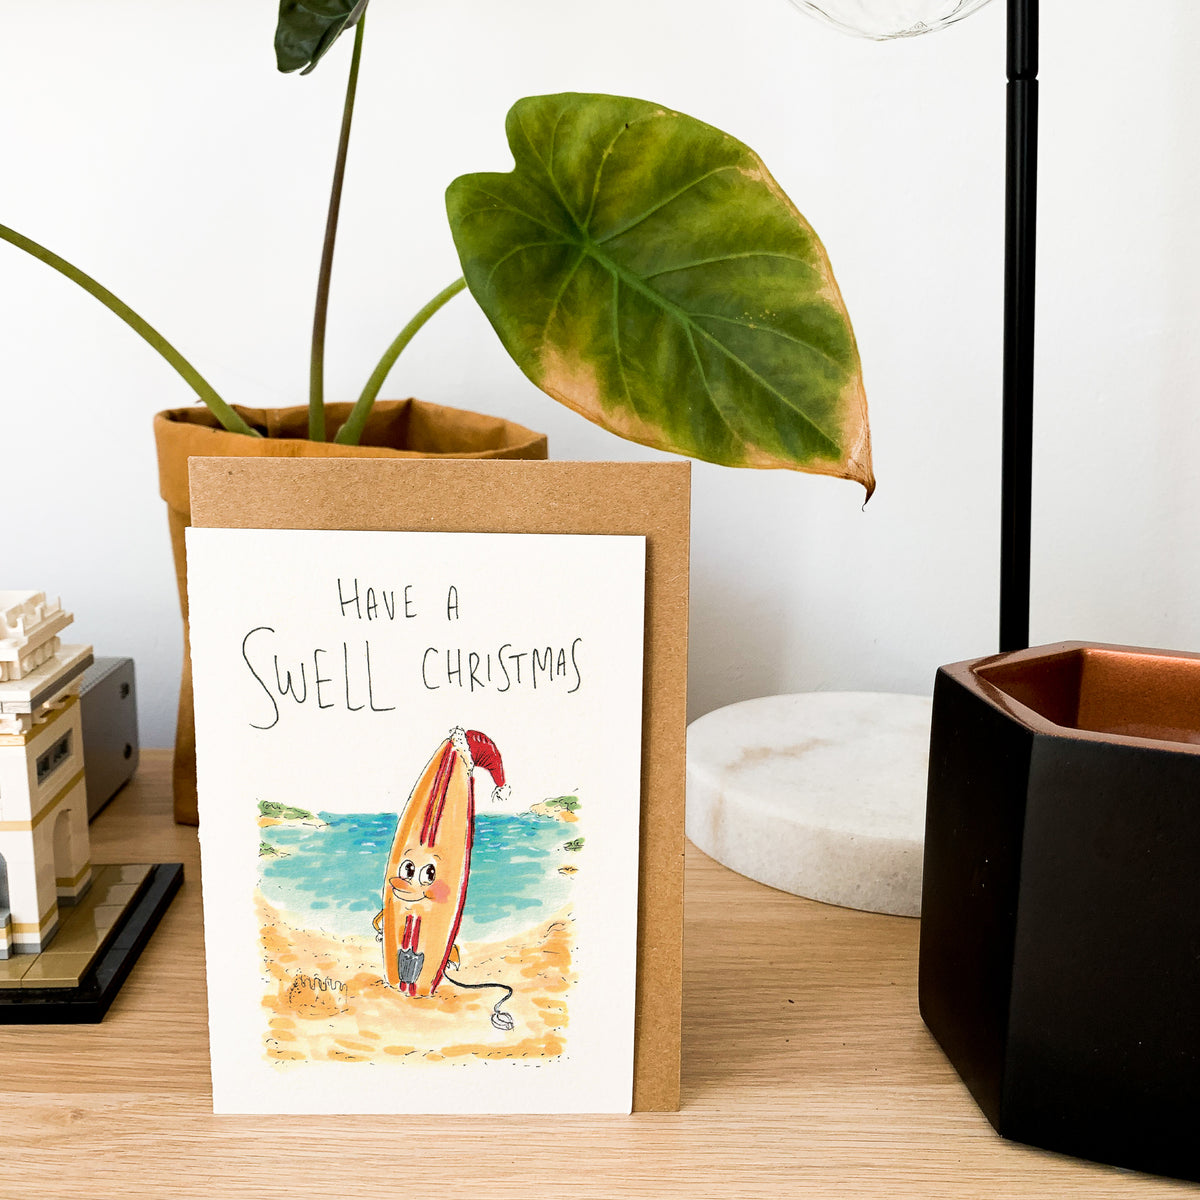 HAVE A
SWELL CHRISTMAS